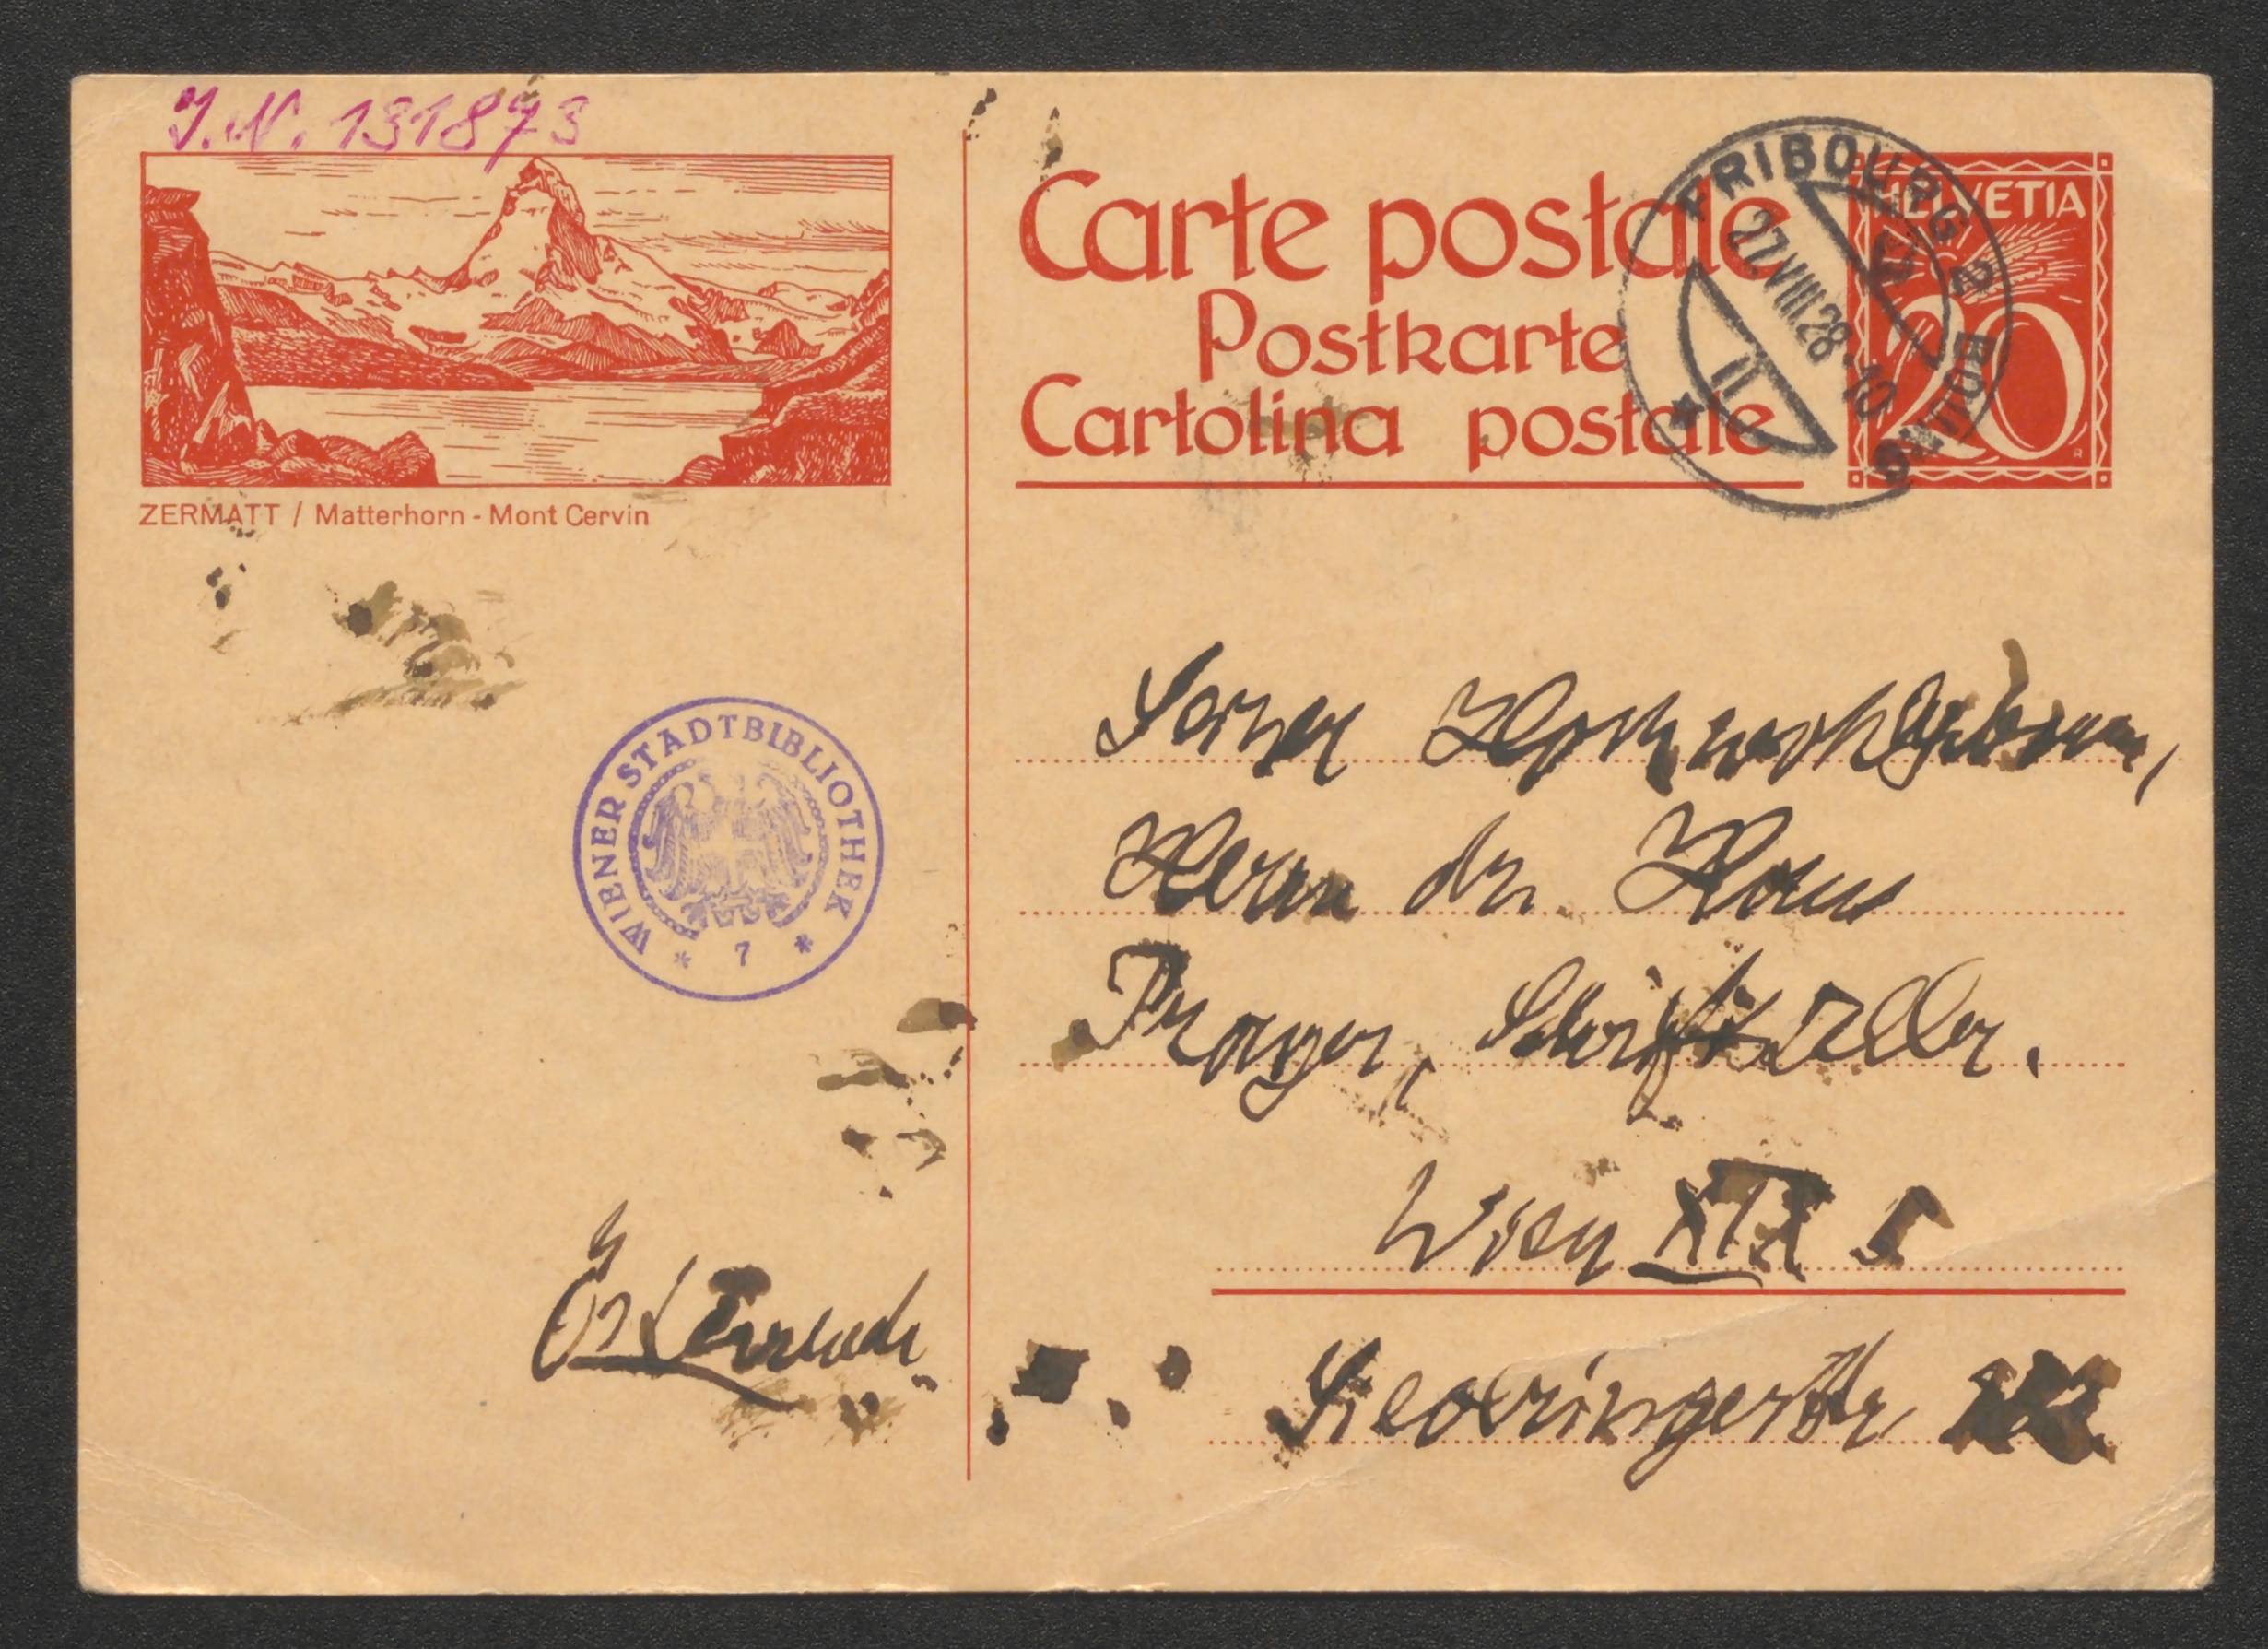 I.N. 131873
ZERMATT / Matterhorn - Mont Cervin
WIENER STADTBIBLIOTHEK
* 7 *
Carte postale
Postkarte
Cartolina postale
FRIBOURG 2
27.VIII.28.-10
HELVETIA
20
Seiner Hochwohlgeboren,
Herrn Dr. Hans
Prager, Schriftsteller.
Wien XIX
Sieveringerstr